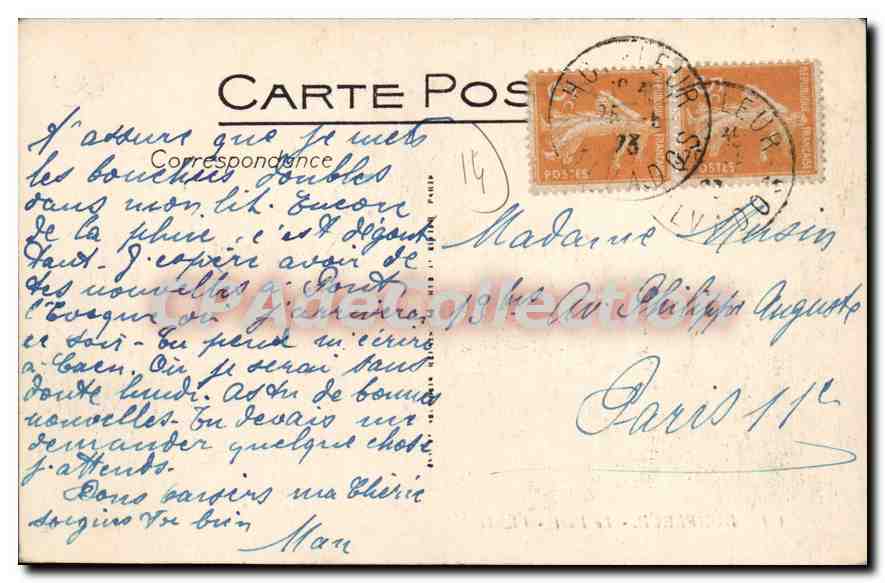 CARTE POS
Correspondance
14
t'assure que je mets
les bouchées doubles
dans mon lit. Encore
de la pluie, c'est dégout
tant. J'espère avoir de
tes nouvelles à Pont
l'Evêque où j'arriverai
ce soir. Tu peux m'écrire
à Caen. Où je serai sans
doute lundi. As tu de bonnes
nouvelles. Tu devais me
demander quelque chose
j'attends.
Bons baisers ma Chérie
soignes toi bien
Man
Madame Mersin
13 bis Av Philippe Auguste
Paris 11e
REPUBLIQUE FRANÇAISE
POSTES
REPUBLIQUE FRANÇAISE
POSTES
HONFLEUR
CALVADOS
CPAdeCollection